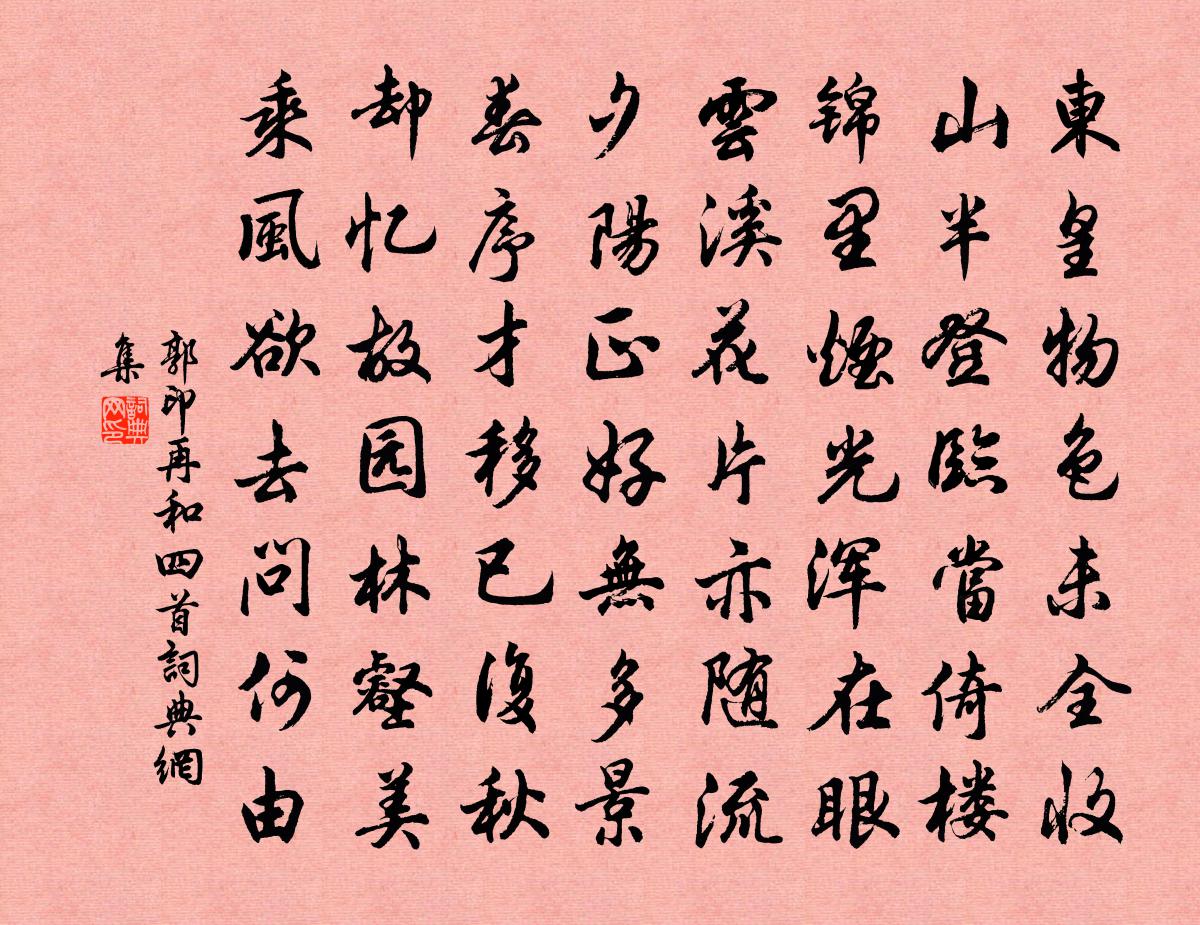 東皇物色未全收
山半登臨當倚楼
锦里煙光浑在眼
雲溪花片亦随流
夕陽正好無多景
春序才移已復秋
却忆故园林壑美
乘風欲去问何由
郭印再和四首詞典網
集
詞典
网印